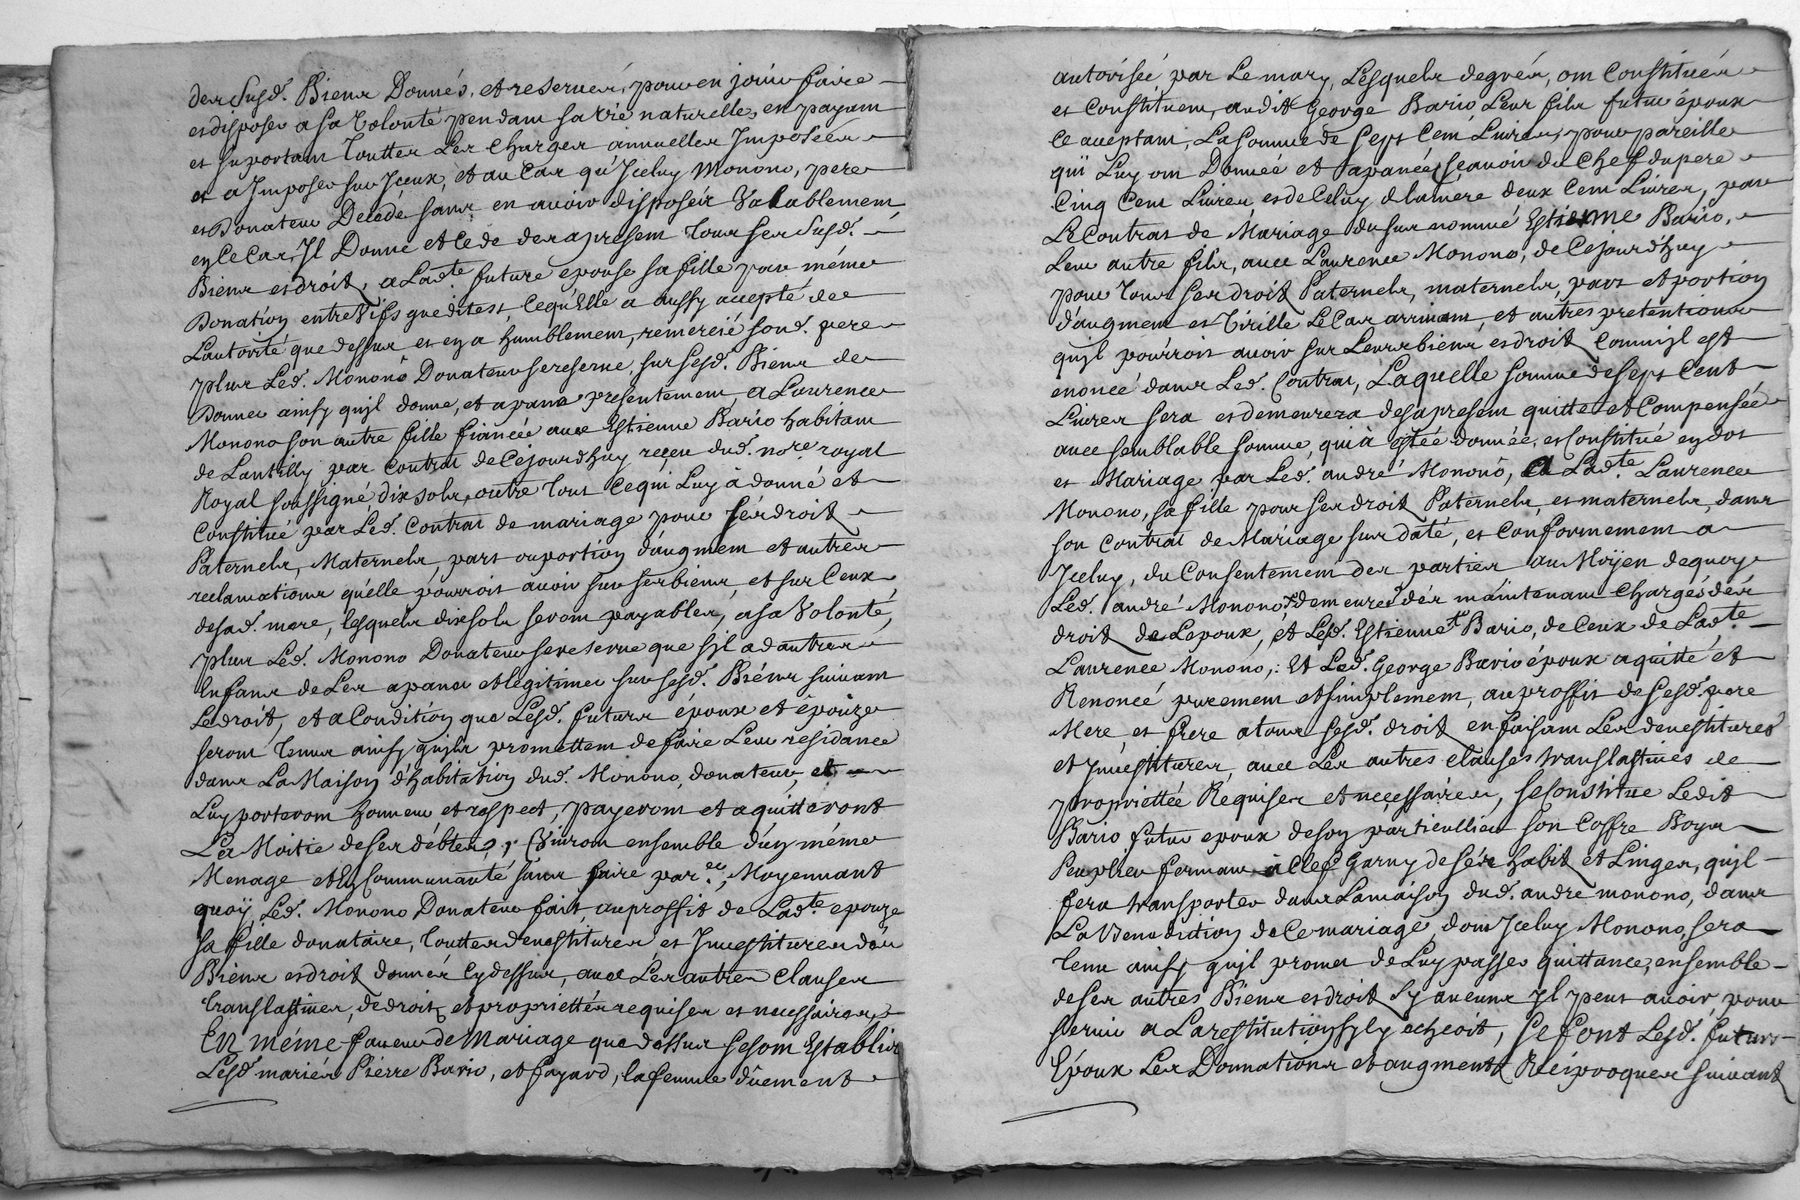 des Susd. Biens Donnés, et reservés, pour en jouir faire
et disposer a sa Volonté pendant sa vie naturelle, en payant
et suportant Touttes Les Charges annuelles Imposées
et a Imposer sur Iceux, et au Cas qu'Iceluy Monono, pere
et Donateur Decede sans en avoir disposér Valablement
en Ce Cas, Il Donne et Cede des apresent Tous ses Susd.
Biens et droit, a Lade. future epouse sa fille par méme
Donation entre Vifs que ditest, Ce qu'Elle a aussy accepté de
L'autorité que dessus et en a humblement, remercié sond. pere
plus Led. Monono Donateur se reserve, sur sesd. Biens de
Donner ainsy qu'jl donne, et apana presentement, a Laurence
Monono son autre fille fiancée avec Estienne Bario habitant
de Lantilly par Contrat de Cejourdhuy reçeu dud. nore royal
Royal soussigné dix sols, outre Tout Ce qui Luy à donné et
Constitué par Led. Contrat de mariage pour sés droit
Paternels, Maternels, part ou portion d'augment et autres
reclamations qu'élle pourroit avoir sur ses biens, et sur Ceux
de sad. mere, lesquels dix sols seront payables, a sa Volonté,
plus Led. Monono Donateur se reserve que s'jl a d'autres
Enfans de Les apaner et legitimer sur sesd. Biéns suivant
Le droit, et a Condition que Lesd. futurs époux et épouze
seront Tenus ainsy qu'jls promettent de faire Leur residance
dans La Maison d'habitation dud. Monono, donateur, et
Luy porteront honneur et respect, payeront et aquitteront
Les Moitie de ses débtes, Vivront ensemble d'un méme
Menage et En Communauté sans faire par.ee, Moyennant
quoÿ, Led. Monono Donateur fait, au proffit de Lade. epouze
sa fille donataire, Touttes devestitures et Investitures dés
Biens et droit donnés Cy dessus, avec Les autres Clauses
translatives, de droit et propriettés requises et necessaires
En méme faveur de Mariage que dessus se sont Establis
Lesd. mariés Piérre Bario, et fayard, la femme dûement
autorisée par Le mary, Lesquels de gré, ont Constitués
et Constituent, audit George Bario Leur fils futur époux
Ce aceptant, La Somme de Sept Cent Livres, pour pareille
qui Luy ont Donnée et apanée, sçavoir du Chef du pere
Cinq Cent Livres et de Celuy de la mere deux Cent Livres, par
Le Contrat de Mariage du sus nommé Estienne Bario,
Leur autre fils, avec Laurence Monono, de Cejourd'huy
pour Tous ses droit Paternels, maternels, part et portion
d'augment et Virille Le Cas arrivant, et autres pretentions
qu'jl pourroit avoir sur Leurs biens et droit Comm'jl est
enoncé dans Led. Contrat, Laquelle somme de Sept Cent
Livres sera et demeurera des apresent quitte et Compensée
avec semblable somme, qui à étée donnée, et Constitué en dot
et Mariage par Led. andré Monono, A Lade. Laurence
Monono, sa fille pour ses droit Paternels et maternels, dans
son Contrat de Mariage sus daté, et Conformement a
Iceluy, du Consentement des parties au Moÿen de quoy
Led. andré Monono demeures dés maintenant Chargés dés
droit de L'epoux, et Lesd. Estienne Bario, de Ceux de Lade.
Laurence Monono, : Et Led. George Bario époux a quitté et
Renoncé purement et simplement, au proffit de Sesd. pere
Mere, et frere a tous sesd. droit en faisant Les devestitures
et Investitures, avec Les autres Clauses translatives de
propriettée Requises et neçessaires, se Constitue Ledit
Bario futur epoux de son particullier son Coffre Boys
Peuplier fermant à Clef garny de sés habit et Linges, qu'jl
fera transporter dans La maison dud. andre monono, dans
La Benediction de Ce mariage, dont Iceluy Monono sera
Tenu ainsy qu'jl promet de Luy passer quittance, ensemble
de ses autres Biens et droit S'y aucuns Il peut avoir, pour
servir a La restitution s'y ly echeoit, se font Lesd. futurs
Epoux Les Donnations et augments Réciproques suivant